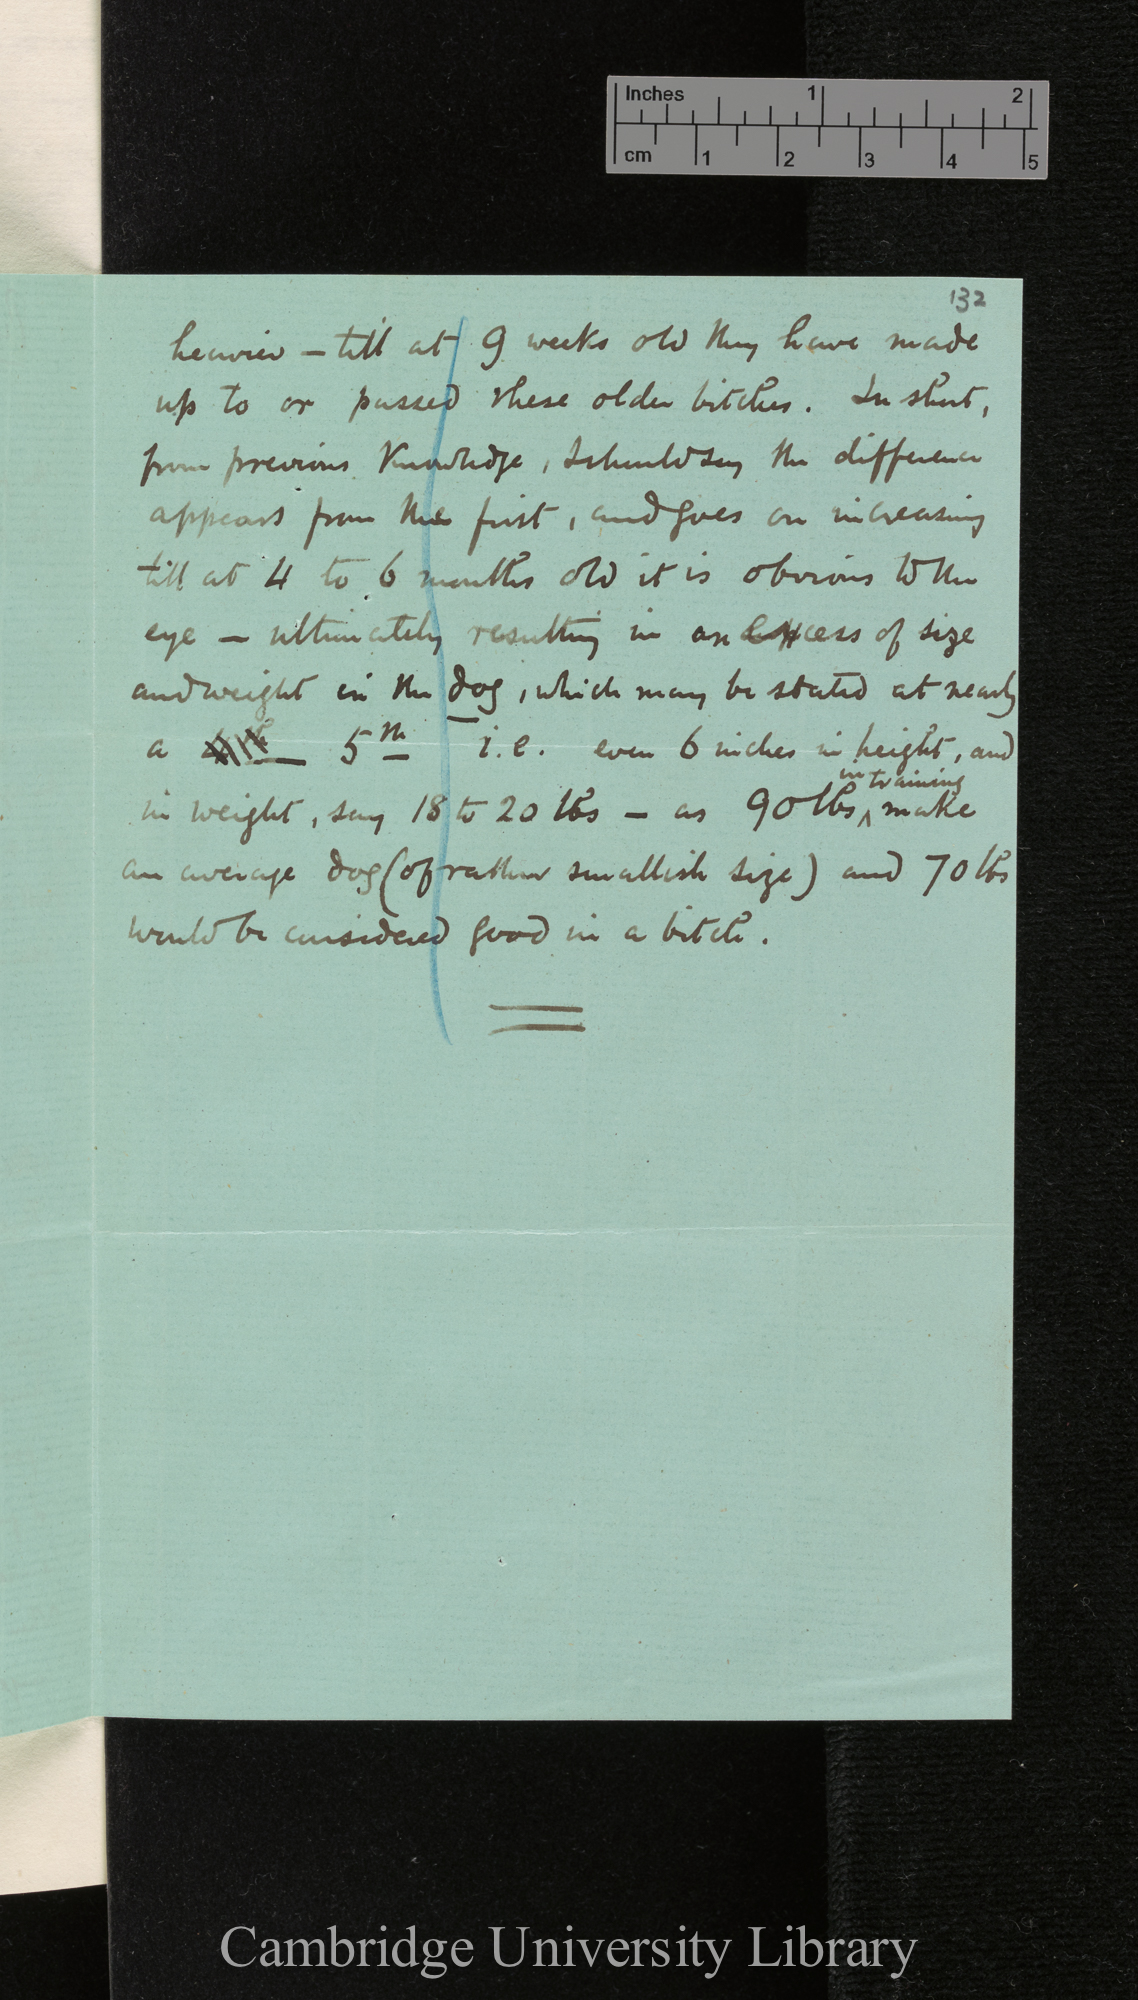 Inches 1 2
cm 1 2 3 4 5
132
heavier – till at 9 weeks old they have made
up to or passed these older bitches. In short,
from previous knowledge, I should say the difference
appears from the first, and goes on increasing
till at 4 to 6 months old it is obvious to the
eye – ultimately resulting in an excess of size
and weight in the dog, which may be stated at nearly
a 5th i.e. even 6 inches in height, and
in training
in weight, say 18 to 20 lbs – as 90 lbs ^ make
an average dog (of rather smallish size) and 70 lbs
would be considered good in a bitch.
Cambridge University Library